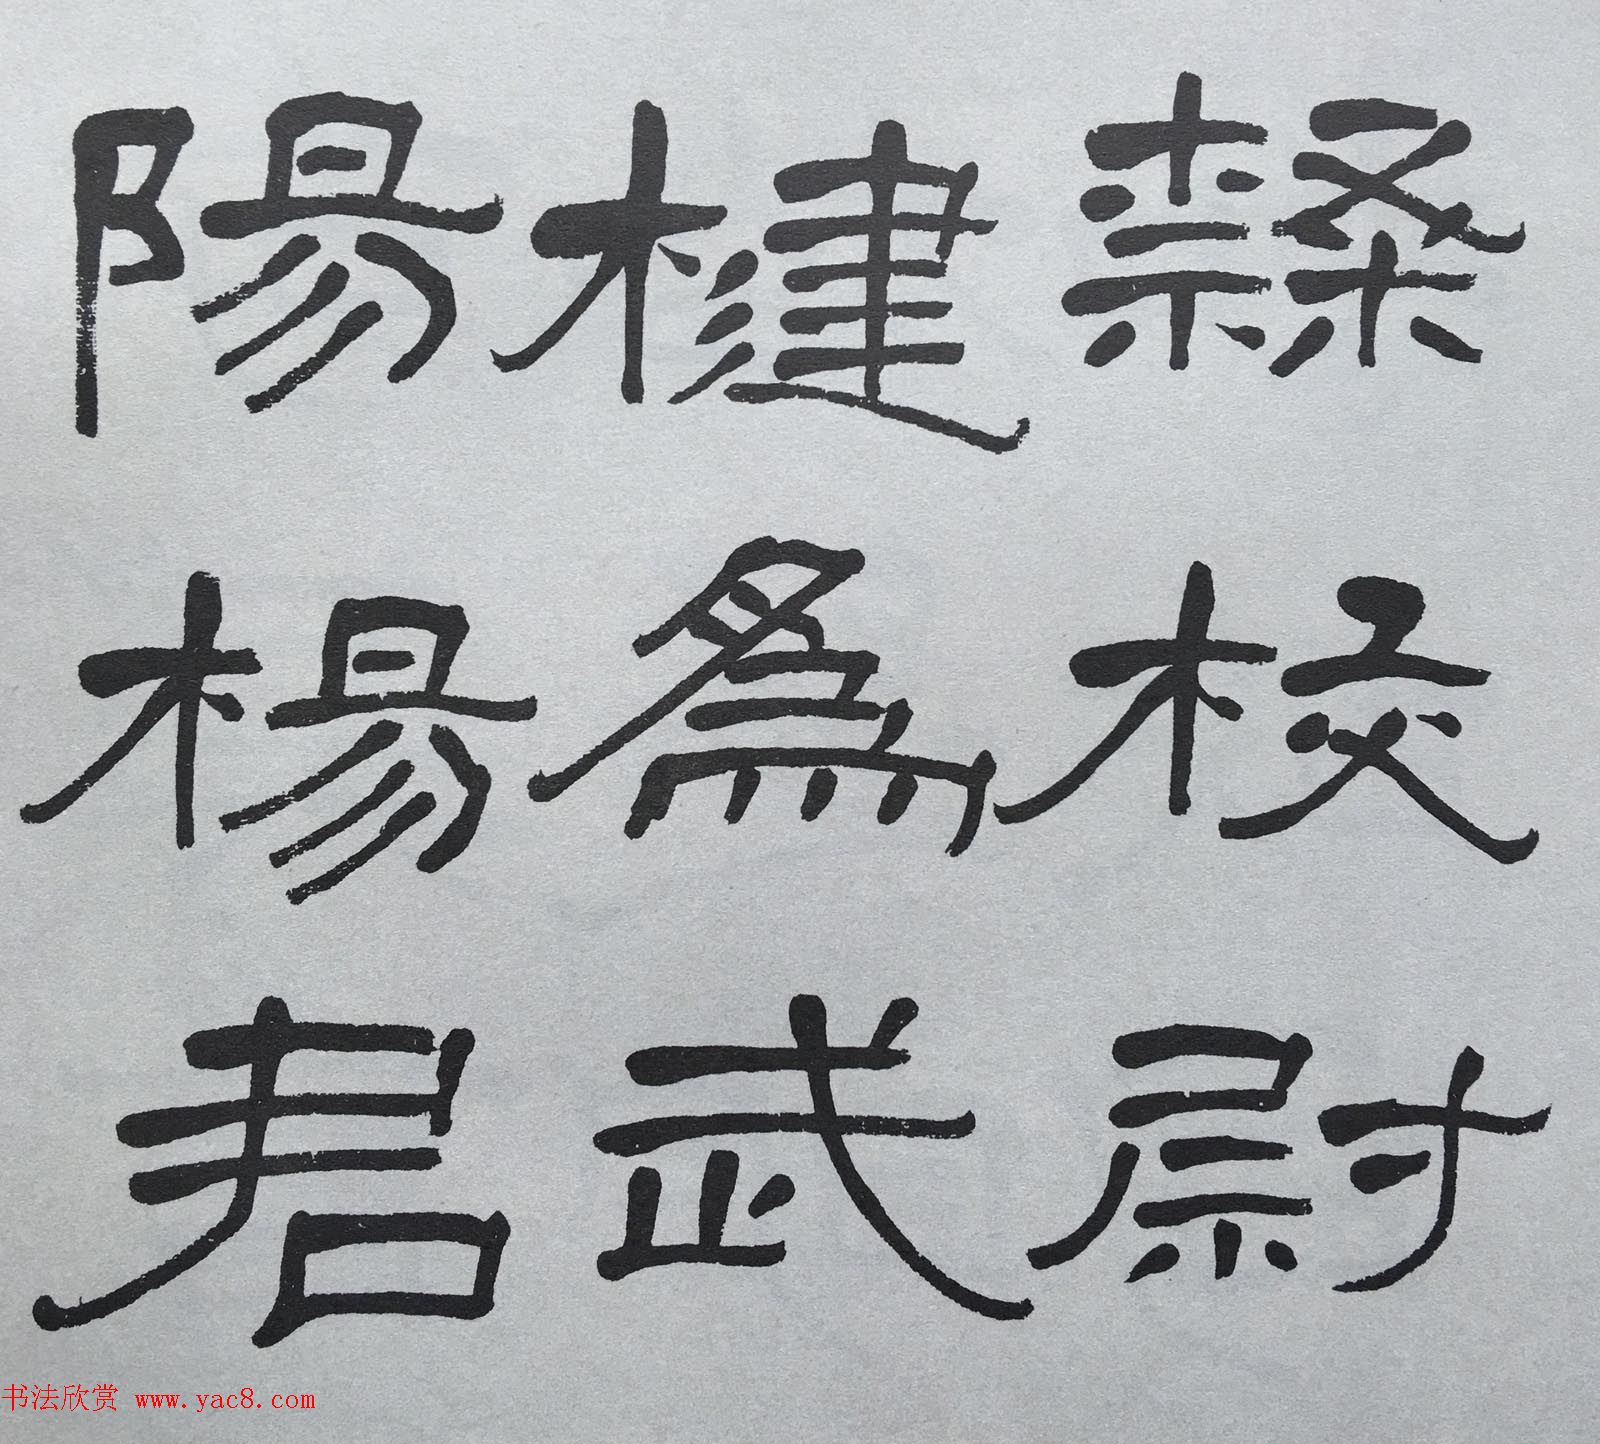 隸校尉
楗爲武
陽楊君
书法欣赏 www.yac8.com